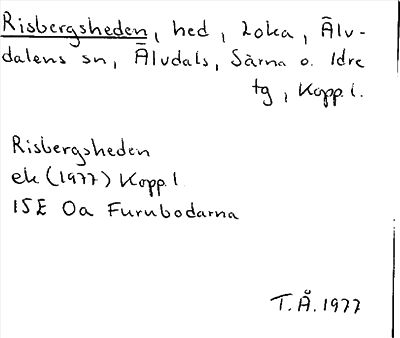 Risbergsheden, hed, Loka, Älv-
dalens sn, Älvdals, Särna o. Idre
tg, Kopp. l.
Risbergsheden
ek (1977) Kopp. l
15E 0a Furubodarna
T.Å. 1977